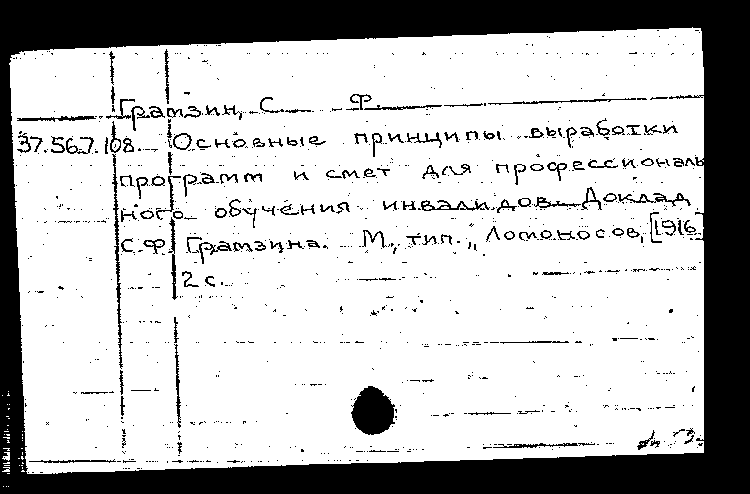 Грамзин, С. Ф.
37.56.7.108. Основные принципы выработки
программ и смет для профессиональ
ного обучения инвалидов. Доклад
С.Ф. Грамзина. М., тип. „Ломоносов, [1916]
2 с.